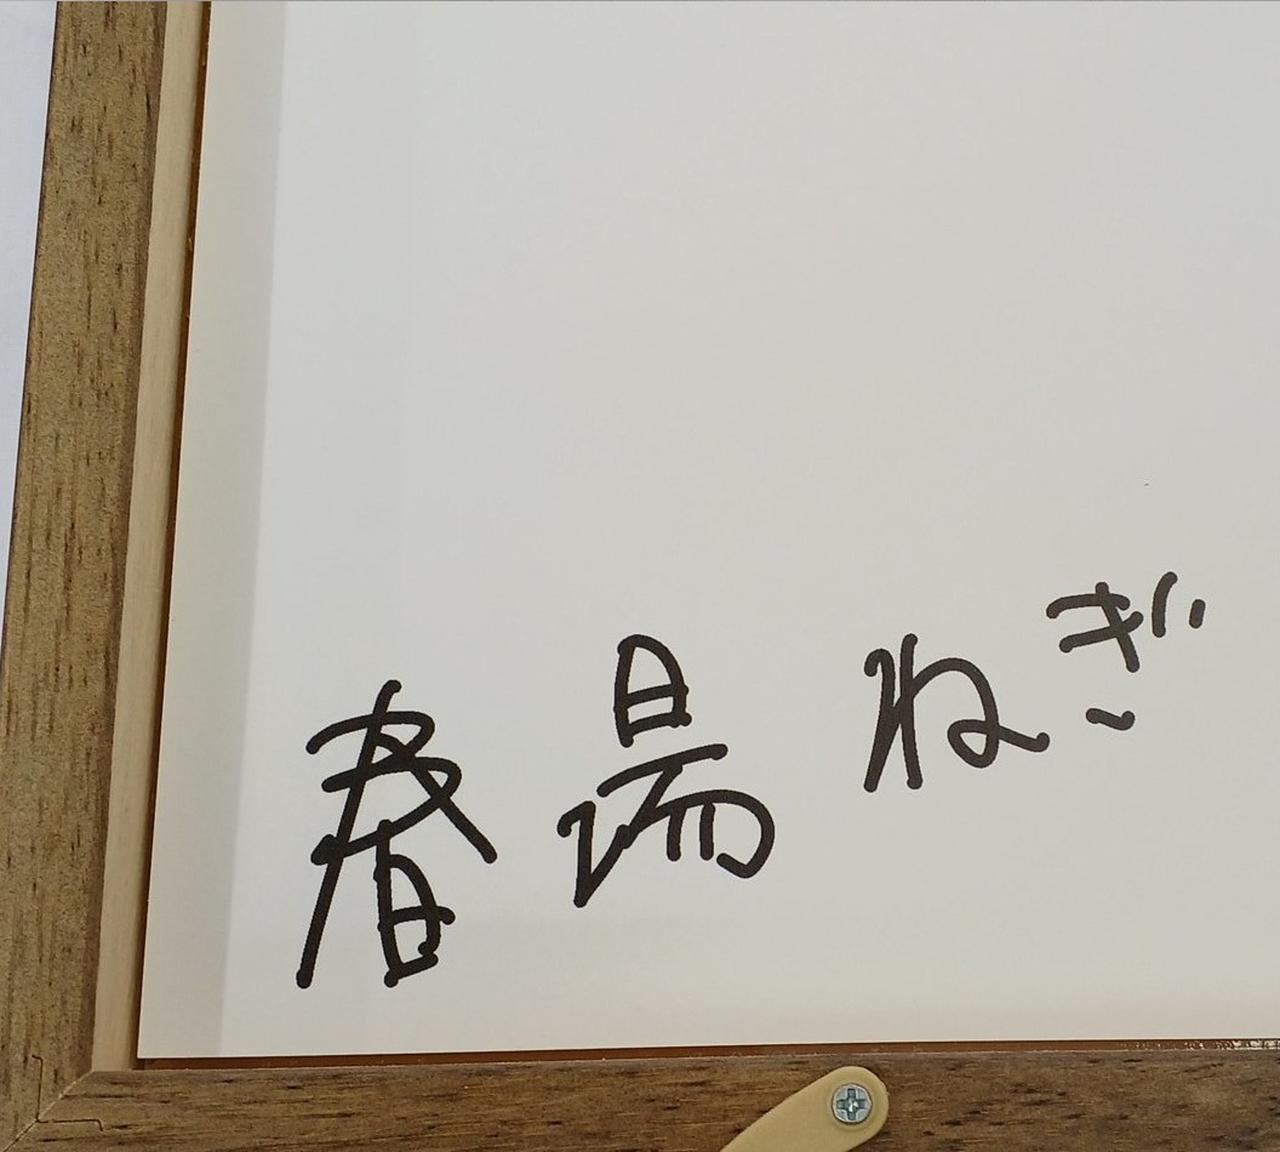 春場ねぎ